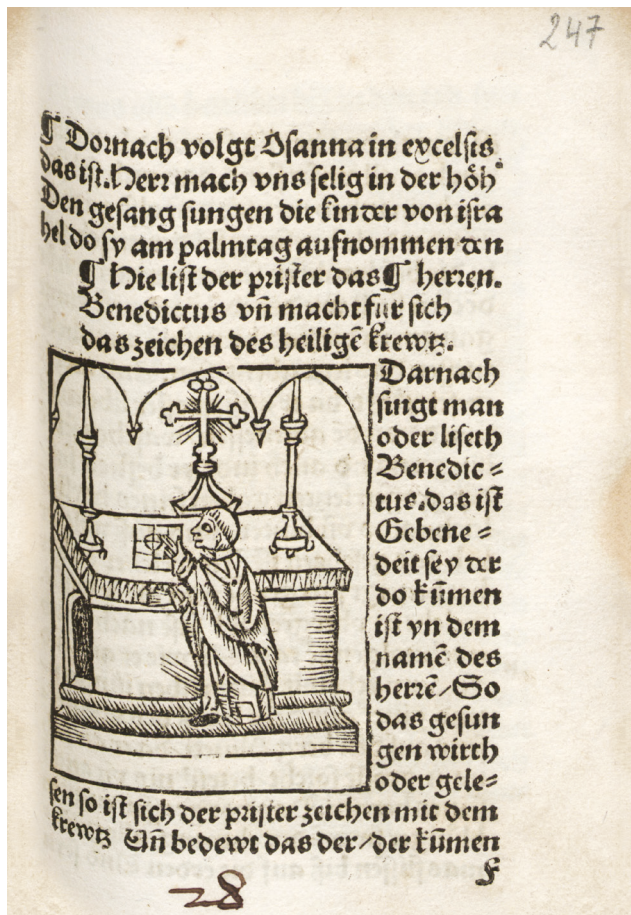 247
¶ Dornach volgt Osanna in excelsis.
das ist. Herr mach vns selig in der höh
Den gesang sungen die kinder von isra
hel do sy am palmtag aufnommen den
¶ Hie list der prister das ¶ herren.
Benedictus vn̄ macht fur sich
das zeichen des heiligē krewtz.
Darnach
singt man
oder liseth
Benedic⸗
tus. das ist
Gebene⸗
deit sey der
do kūmen
ist yn dem
namē des
herrē/So
das gesun
gen wirth
oder gele⸗
sen so ist sich der prister zeichen mit dem
krewtz Vn̄ bedewt das der/der kūmen
f
28